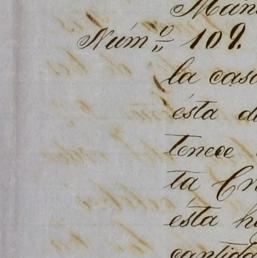 Man
Núm.º 109.
la casa
ésta d
tenece
ta Cr
esta h
cantida